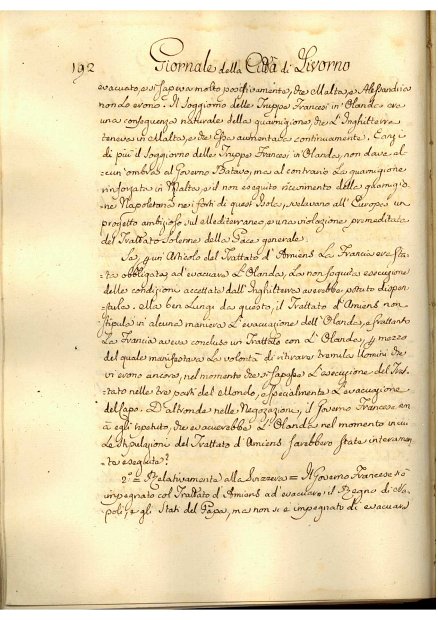 192 Giornale della Città di Livorno
evacuato, e si sapeva molto positivamente, che Malta, e Alessandria
non lo erono. Il Soggiorno delle Truppe Francesi in Olanda era
una conseguenza naturale della guarnigione, che L'Inghilterra
teneva in Malta, e che essa aumentava continuamente. Anzi
di più il Soggiorno delle Truppe Francesi in Olanda, non dava al-
-cun'ombra al Governo Batavo, ma al contrario La guarnigione
rinforzata in Malta, e il non eseguito ricevimento della guarnigio-
-ne Napoletana nei forti di quest'Isola, svelavano all'Europa un
progetto ambizioso sul Mediterraneo, e una violazione premeditata
del Trattato Solenne della Pace generale.
Se, p un Articolo del Trattato d'Amiens La Francia era sta-
-ta obbligata ad evacuare L'Olanda, La non seguita esecuzione
delle condizioni accettate dall'Inghilterra averebbe potuto dispen-
-sarla. Ma ben Lungi da questo, il Trattato d'Amiens non
stipula in alcuna maniera L'evacuazione dell'Olanda, e frattanto
La Francia aveva concluso un Trattato con L'Olanda, p mezzo
del quale manifestava La volontà di ritirare tremila Uomini che
vi erono ancora, nel momento che si sapesse L'esecuzione del Trat-
-tato nelle tre parti del Mondo, e specialmente L'evacuazione
del Capo. D'altronde nelle Negoziazioni, il Governo Francese non
à egli ripetuto, che evacuerebbe L'Olanda nel momento in cui
Le stipulazioni del Trattato d'Amiens sarebbero state interamen-
-te eseguite?
2.° = Relativamente alla Svizzera = Il Governo Francese si è
impegnato col Trattato d'Amiens ad evacuare il Regno di Na-
poli, e gli Stati del Papa, ma non si è impegnato di evacuare